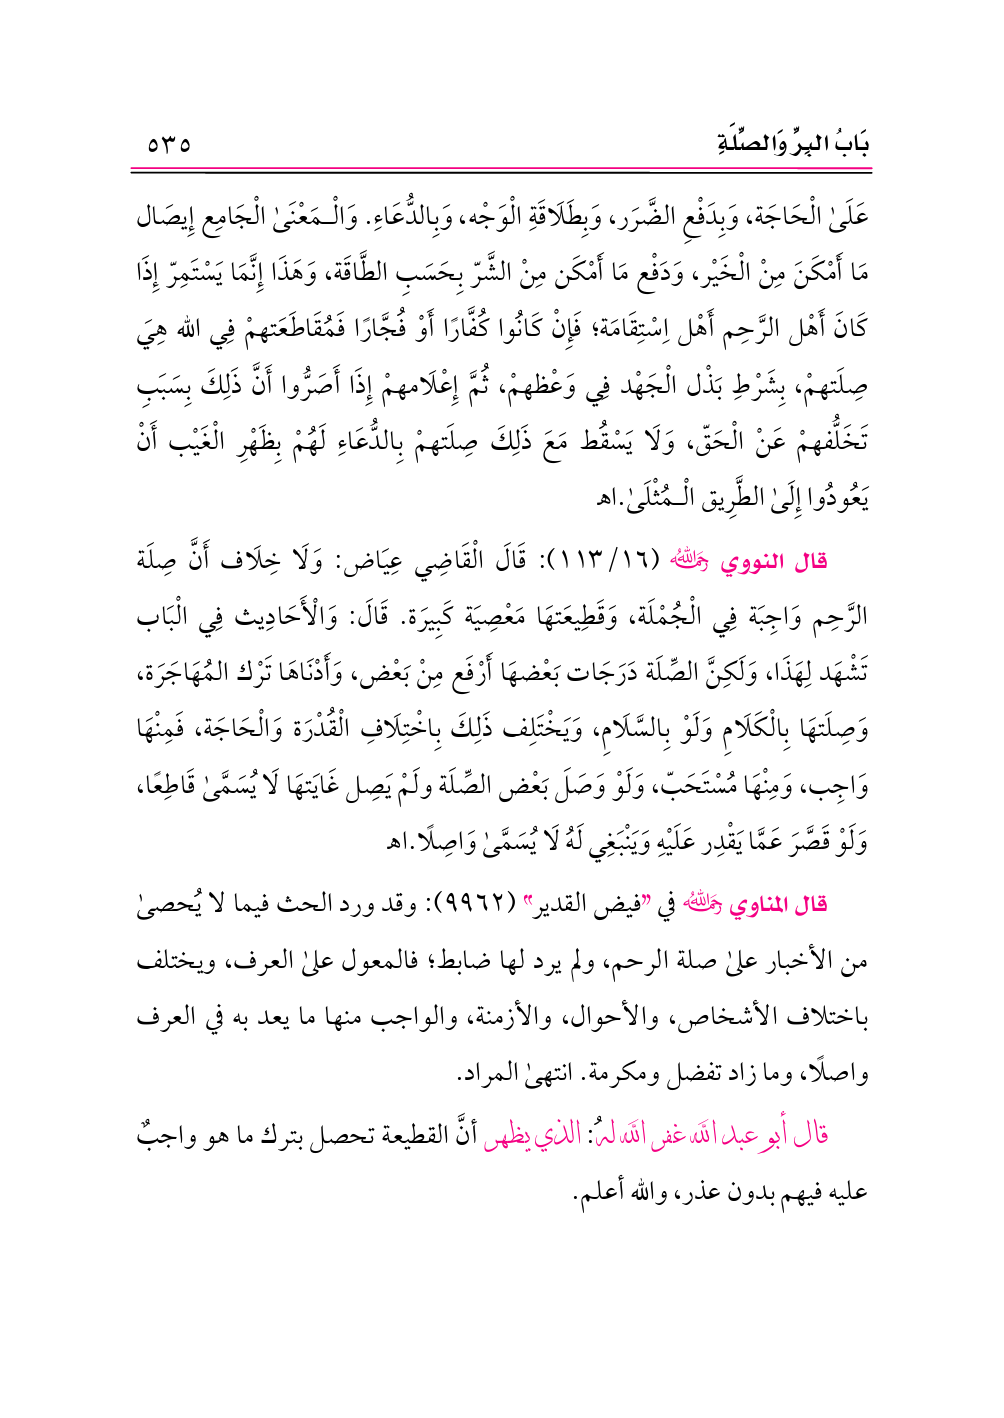 بَابُ البِرِّ وَالصِّلَةِ ٥٣٥
عَلَىٰ الْحَاجَة، وَبِدَفْعِ الضَّرَر، وَبِطَلَاقَةِ الْوَجْه، وَبِالدُّعَاءِ. وَالْـمَعْنَىٰ الْجَامِع إِيصَال
مَا أَمْكَنَ مِنْ الْخَيْر، وَدَفْع مَا أَمْكَن مِنْ الشَّرّ بِحَسَبِ الطَّاقَة، وَهَذَا إِنَّمَا يَسْتَمِرّ إِذَا
كَانَ أَهْل الرَّحِم أَهْل اِسْتِقَامَة؛ فَإِنْ كَانُوا كُفَّارًا أَوْ فُجَّارًا فَمُقَاطَعَتهمْ فِي الله هِيَ
صِلَتهمْ، بِشَرْطِ بَذْل الْجَهْد فِي وَعْظهمْ، ثُمَّ إِعْلَامهمْ إِذَا أَصَرُّوا أَنَّ ذَلِكَ بِسَبَبِ
تَخَلُّفهمْ عَنْ الْحَقّ، وَلَا يَسْقُط مَعَ ذَلِكَ صِلَتهمْ بِالدُّعَاءِ لَهُمْ بِظَهْرِ الْغَيْب أَنْ
يَعُودُوا إِلَىٰ الطَّرِيق الْـمُثْلَىٰ.اهـ
قال النووي رحمه الله (١٦/ ١١٣): قَالَ الْقَاضِي عِيَاض: وَلَا خِلَاف أَنَّ صِلَة
الرَّحِم وَاجِبَة فِي الْجُمْلَة، وَقَطِيعَتهَا مَعْصِيَة كَبِيرَة. قَالَ: وَالْأَحَادِيث فِي الْبَاب
تَشْهَد لِهَذَا، وَلَكِنَّ الصِّلَة دَرَجَات بَعْضهَا أَرْفَع مِنْ بَعْض، وَأَدْنَاهَا تَرْك المُهَاجَرَة،
وَصِلَتهَا بِالْكَلَامِ وَلَوْ بِالسَّلَامِ، وَيَخْتَلِف ذَلِكَ بِاخْتِلَافِ الْقُدْرَة وَالْحَاجَة، فَمِنْهَا
وَاجِب، وَمِنْهَا مُسْتَحَبّ، وَلَوْ وَصَلَ بَعْض الصِّلَة ولَمْ يَصِل غَايَتهَا لَا يُسَمَّىٰ قَاطِعًا،
وَلَوْ قَصَّرَ عَمَّا يَقْدِر عَلَيْهِ وَيَنْبَغِي لَهُ لَا يُسَمَّىٰ وَاصِلًا.اهـ
قال المناوي رحمه الله في "فيض القدير" (٩٩٦٢): وقد ورد الحث فيما لا يُحصىٰ
من الأخبار علىٰ صلة الرحم، ولم يرد لها ضابط؛ فالمعول علىٰ العرف، ويختلف
باختلاف الأشخاص، والأحوال، والأزمنة، والواجب منها ما يعد به في العرف
واصلًا، وما زاد تفضل ومكرمة. انتهىٰ المراد.
قال أبو عبد الله غفر الله لهُ: الذي يظهر أنَّ القطيعة تحصل بترك ما هو واجبٌ
عليه فيهم بدون عذر، والله أعلم.